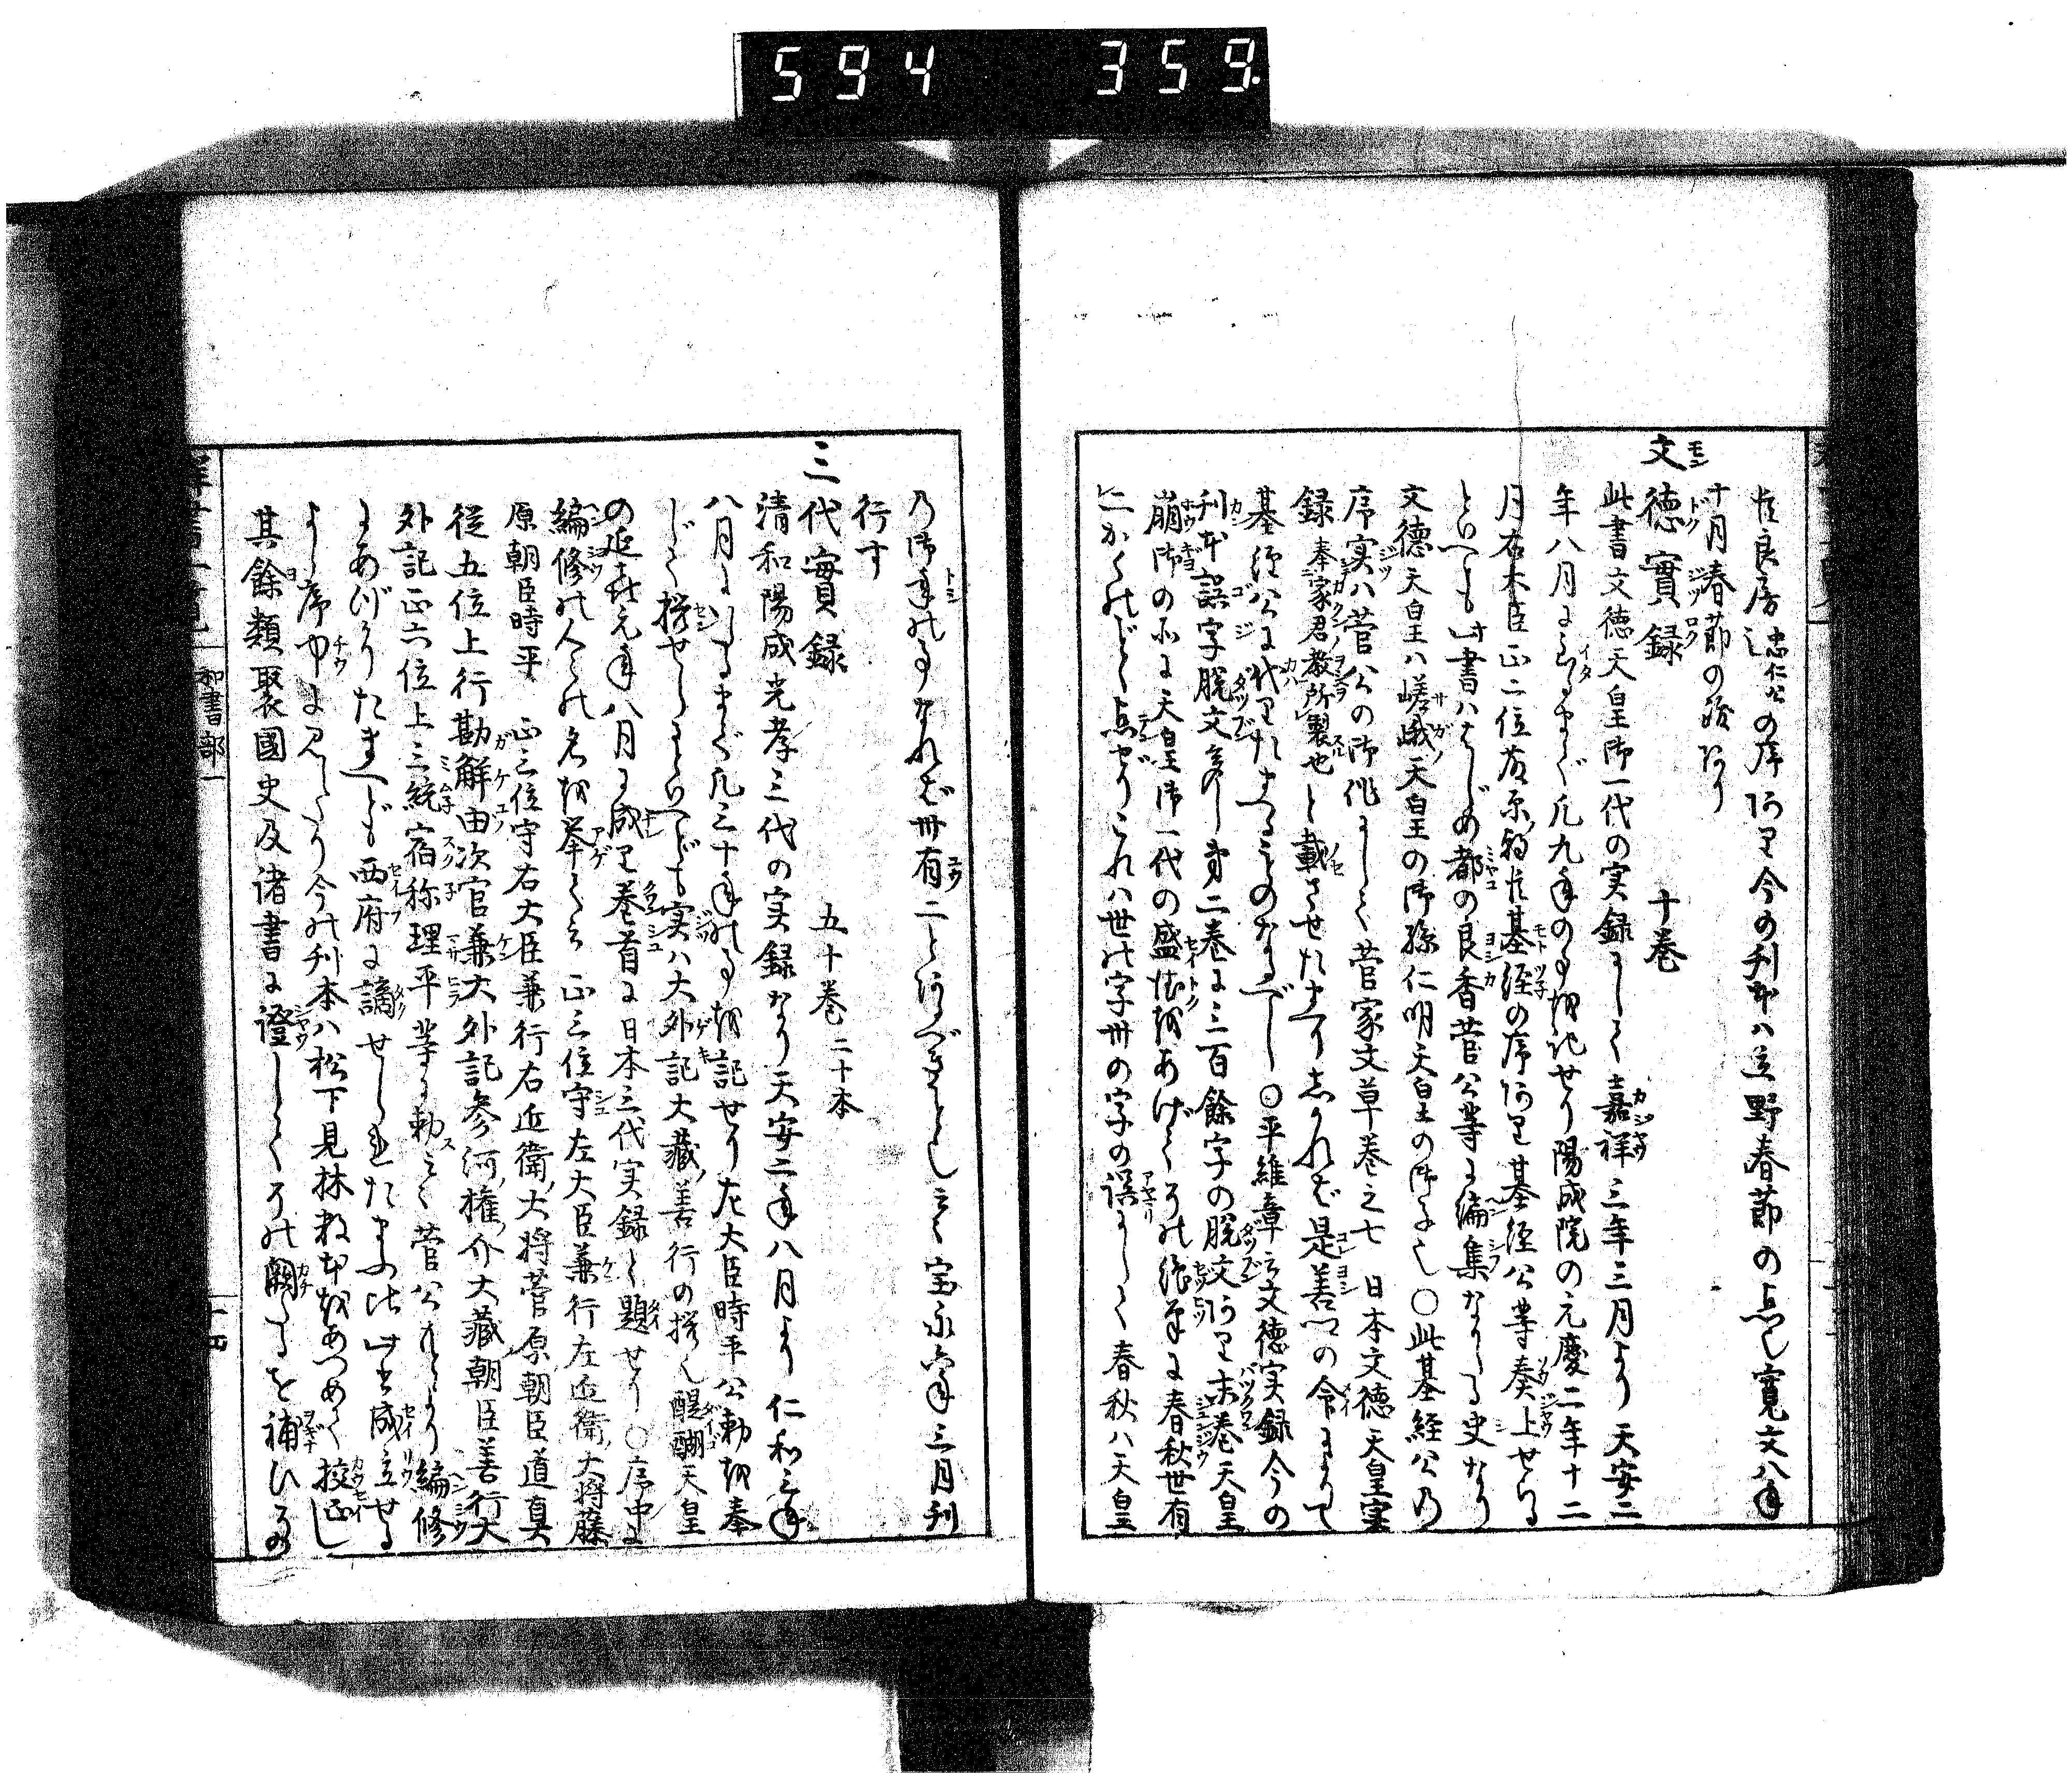 594 359.
臣良房忠仁公の序あり今の刊本ハ立野春節の点也寛文八年
十月春節の跋あり
文徳實録 十巻
此書文徳天皇御一代の実録にして嘉祥三年三月より天安二
年八月にいたるまで凡九年の事を記せり陽成院の元慶二年十二
月右大臣正二位藤原朝臣基経の序あり基経公等奏上せらる
といへども此書ハはじめ都の良香菅公等に編集なりたる史なり
文徳天皇ハ嵯峨天皇の御孫仁明天皇の御子也○此基経公の
序実ハ菅公の御作にして菅家文草巻之七 日本文徳天皇実
録奉家君教所製也と載させたまへりしかれば是善卿の命によりて
基経公に代りたまへるものなるべし○平維章云文徳実録今の
刊本誤字脱文多し第二巻に三百餘字の脱文あり末巻天皇
崩御の所に天皇御一代の盛徳をあげてその後年に春秋世有
二かくのごとく点せりこれハ世の字卅の字の誤にして春秋ハ天皇
の御年の事なれば卅有二とあるべきことしるし宝永六年三月刊
行す
三代實録 五十巻 二十本
清和陽成光孝三代の実録なり天安二年八月より仁和三年
八月にいたるまで凡三十年の事を記せり左大臣時平公勅を奉
じて撰せらるといへども実ハ大外記大蔵善行の撰也醍醐天皇
の延喜元年八月に成り巻首に日本三代実録と題せり○序中に
編修の人々の名を挙て云 正三位守左大臣兼行左近衛大将藤
原朝臣時平 正三位守右大臣兼行右近衛大将菅原朝臣道真
従五位上行勘解由次官兼大外記参河権介大蔵朝臣善行大
外記正六位上三統宿祢理平等に勅して菅公はじめより編修
にあづかりたまへども西府に謫せられたまふ此書成立せる
よし序中に見えたり今の刊本ハ松下見林数本をあつめて校正し
其餘類聚國史及諸書に證してその闕たるを補ひその
和書部一
十四